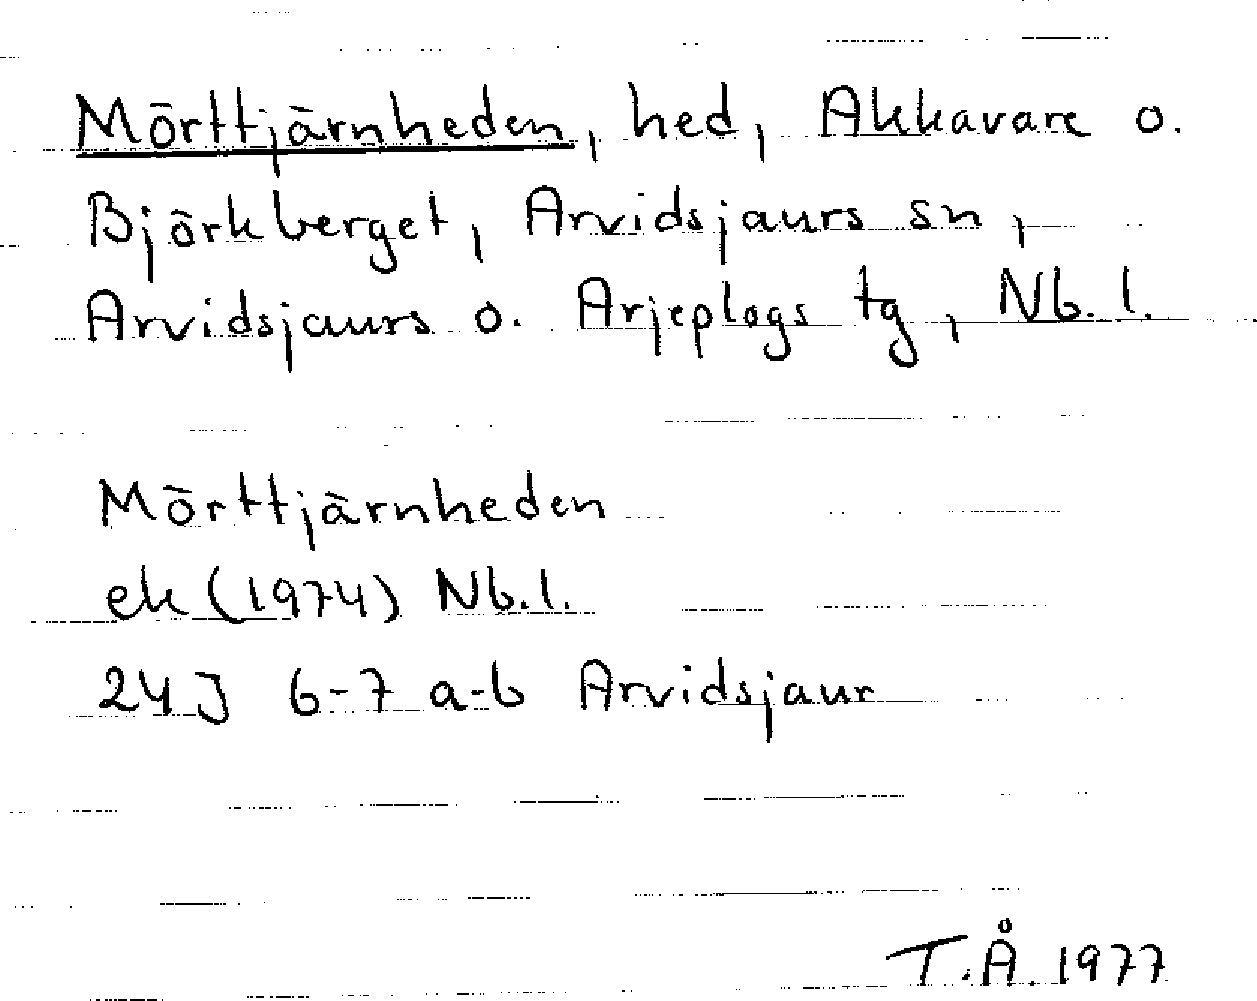 Mörttjärnheden, hed, Akkavare o.
Björkberget, Arvidsjaurs sn,
Arvidsjaurs o. Arjeplogs tg, Nb. l.
Mörttjärnheden
ek (1974) Nb.l.
24J 6-7 a-b Arvidsjaur
T.Å. 1977